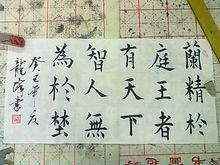 蘭精於
庭王者
有天下
智人無
為於埜
癸巳年夏
龍海書